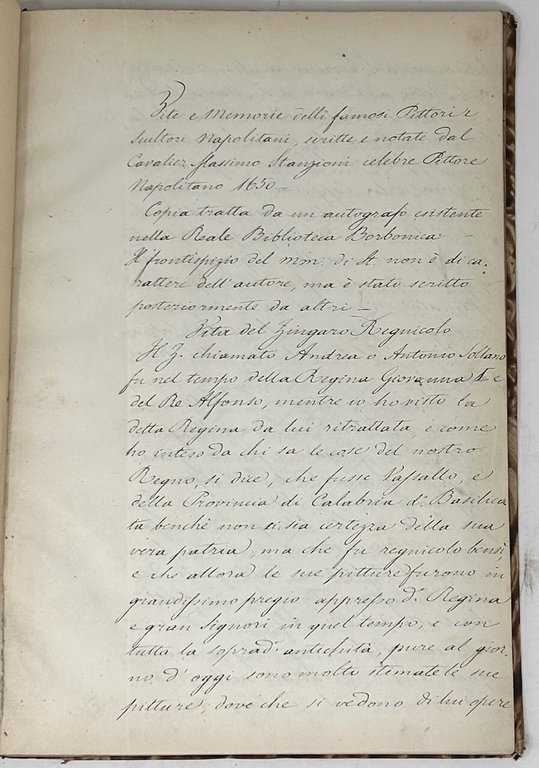 Vite e Memorie delli famosi Pittori e
Scultori Napolitani, scritte e notate dal
Cavalier Massimo Stanzioni celebre Pittore
Napolitano 1650
Copia tratta da un autografo esistente
nella Reale Biblioteca Borbonica
Il frontispizio del mm. di St. non è di ca-
rattere dell'autore, ma è stato scritto
posteriormente da altri —
Vita del Zingaro Regnicolo
Il Z. chiamato Andrea o Antonio Sollano
fu nel tempo della Regina Giovanna I e
del Re Alfonso, mentre io ho visto la
detta Regina da lui ritrattata, e come
ho inteso da chi sa le cose del nostro
Regno, si dice, che fusse Vassallo, e
della Provincia di Calabria o Basilica-
ta benchè non ci sia certezza della sua
vera patria, ma che fu regnicolo bensì
e che allora le sue pitture furono in
grandissimo pregio appresso d.a Regina
e gran Signori in quel tempo, e con
tutta la soprad.a antichità, pure al gior-
no d'oggi sono molto stimate le sue
pitture, dove che si vedono di lui opere